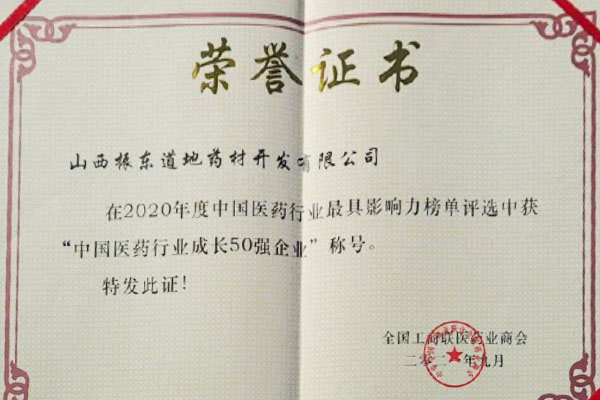 荣誉证书
山西振东道地药材开发有限公司
在2020年度中国医药行业最具影响力榜单评选中获
“中国医药行业成长50强企业”称号。
特发此证!
全国工商联医药业商会
二〇二 年九月